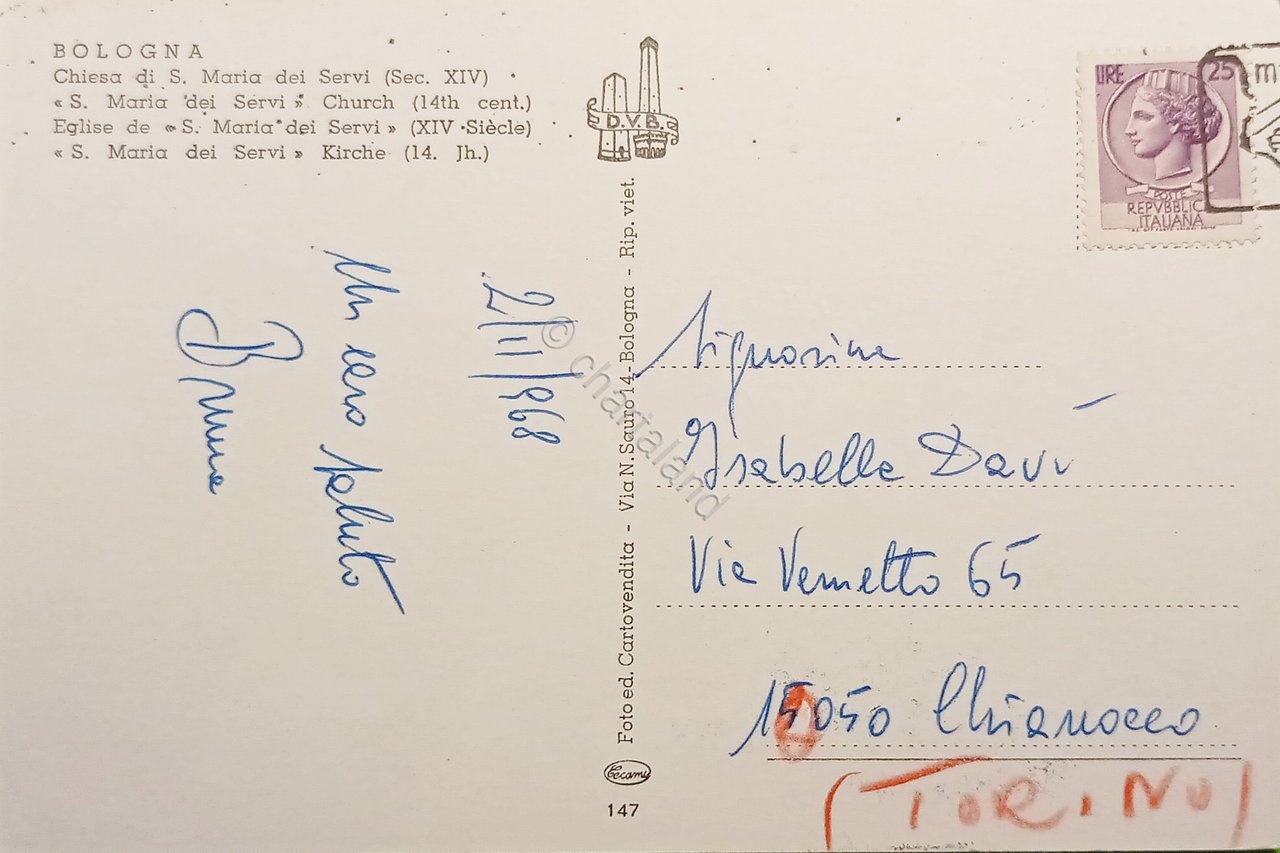 BOLOGNA
Chiesa di S. Maria dei Servi (Sec. XIV)
« S. Maria dei Servi » Church (14th cent.)
Eglise de « S. Maria dei Servi » (XIV Siècle)
« S. Maria dei Servi » Kirche (14. Jh.)
D.V.B.
LIRE 25
POSTE
REPVBBLICA
ITALIANA
2/11/1968
Un caro saluto
Bruna
Foto ed. Cartovendita - Via N. Sauro 14-Bologna - Rip. viet.
© chartaland
Signorina
Isabella Davì
Via Vernetto 65
050 Chianocco
(TORINO)
Cecami
147